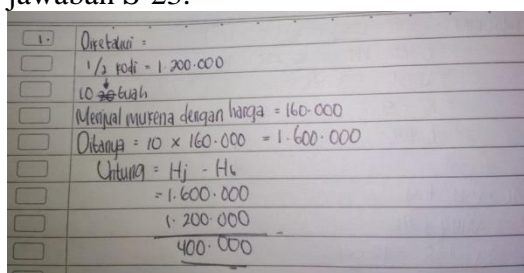 jawaban S-23.
1. Diketahui =
1/2 kodi = 1.200.000
10 buah
Menjual mukena dengan harga = 160.000
Ditanya = 10 × 160.000 = 1.600.000
Untung = Hj - Hb
= 1.600.000
1.200.000 -
400.000